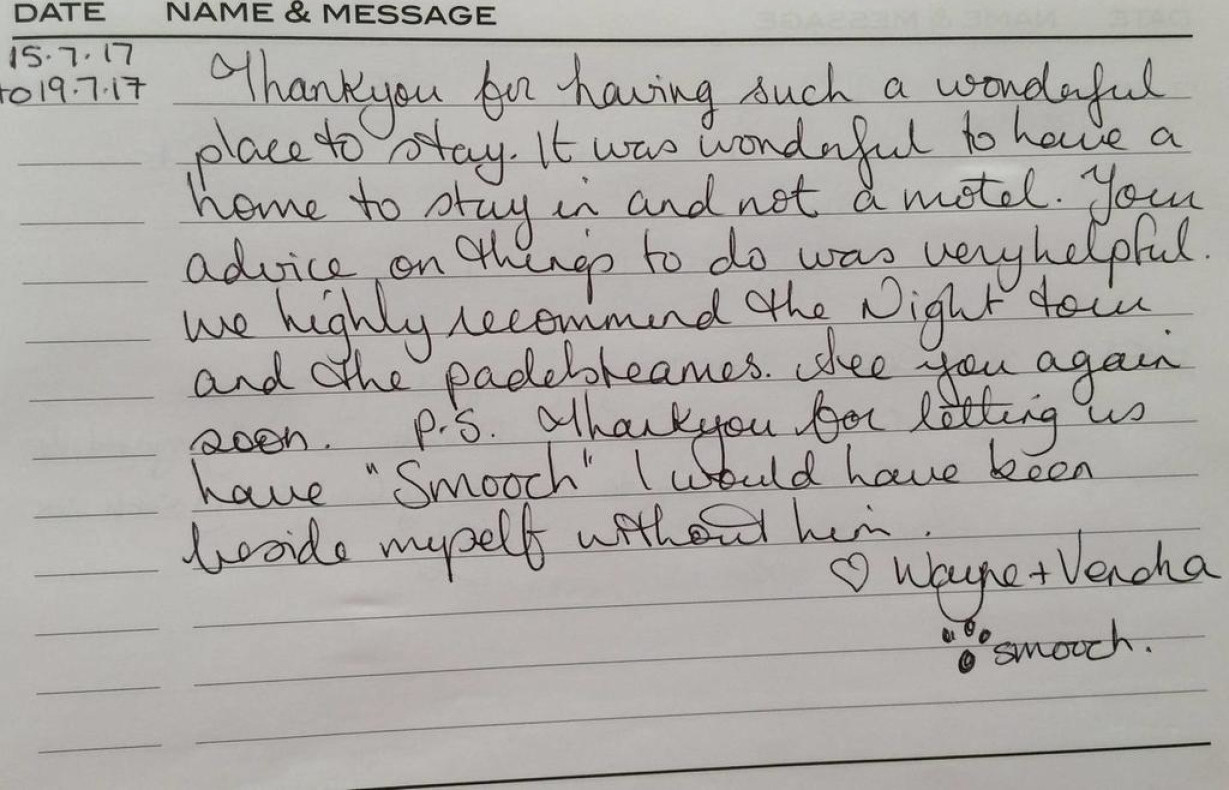 DATE NAME & MESSAGE
15.7.17
to 19.7.17
Thankyou for having such a wonderful
place to stay. It was wonderful to have a
home to stay in and not a motel. Your
advice on things to do was very helpful.
we highly recommend the Night tour
and the padelsteames. See you again
soon. P.S. Thankyou for letting us
have "Smooch" I would have been
beside myself without him.
♡ Wayne + Vendha
smooch.